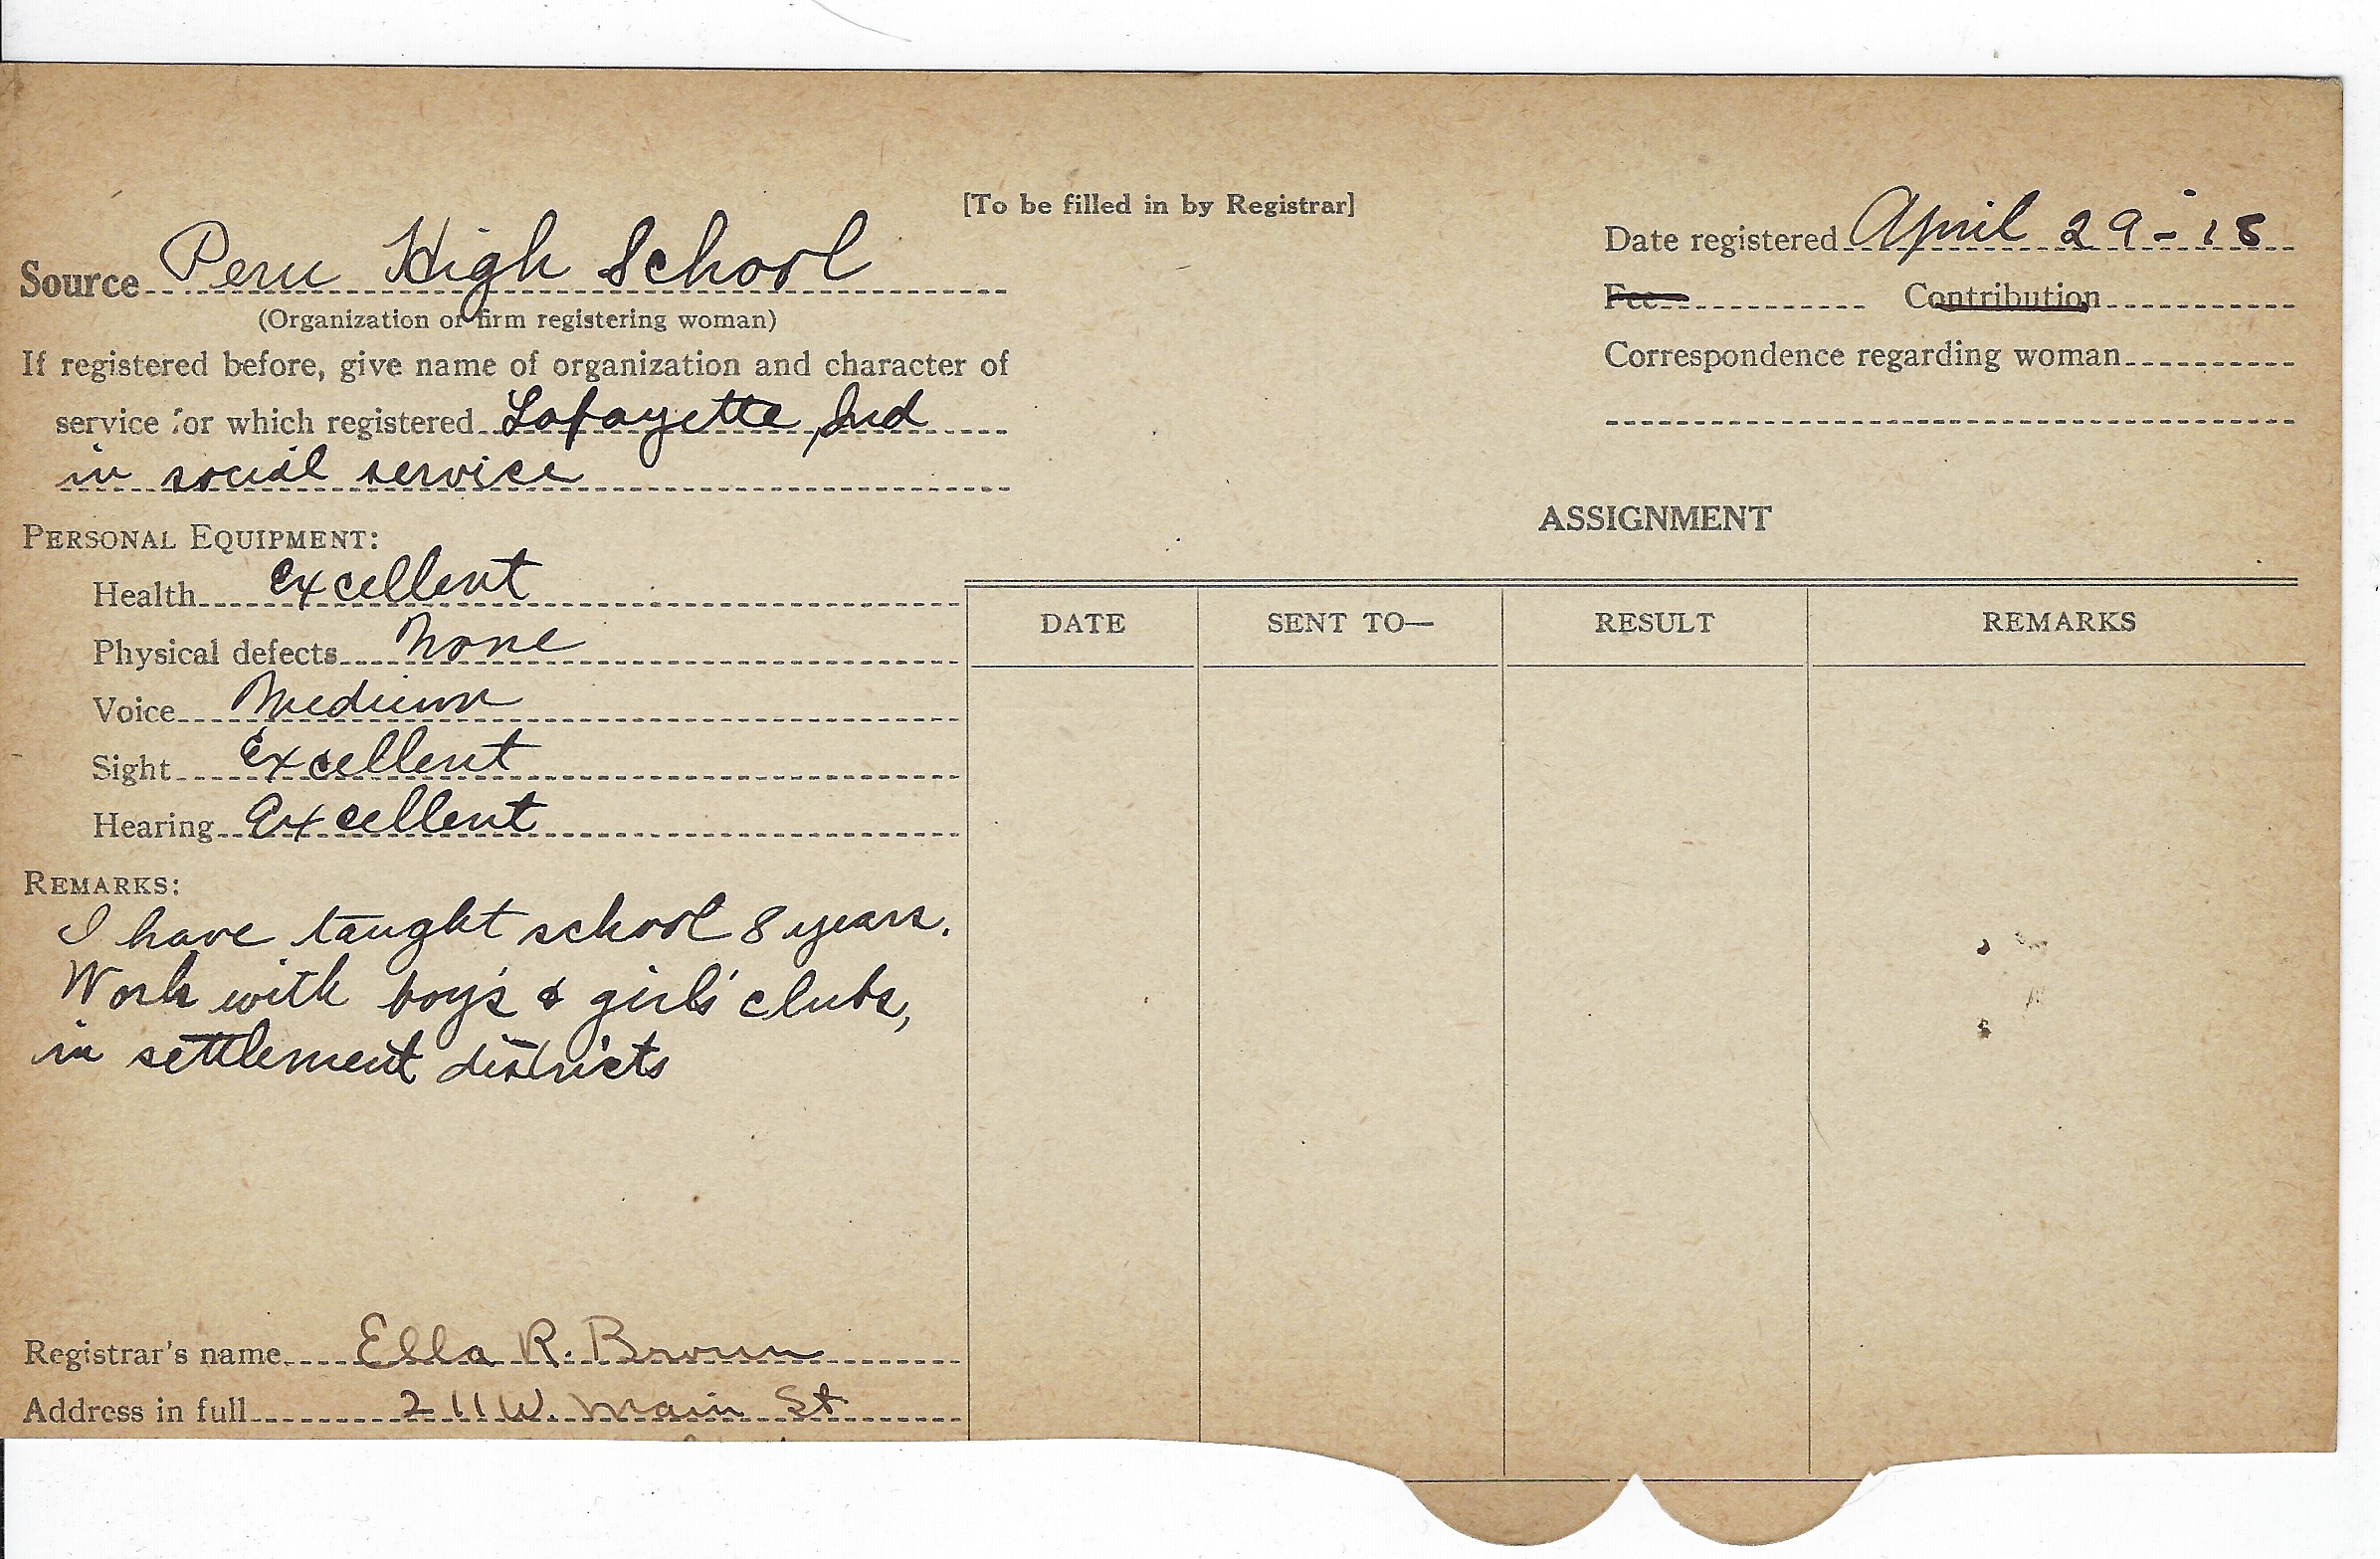 [To be filled in by Registrar]
Source Peru High School
(Organization or firm registering woman)
If registered before, give name of organization and character of
service for which registered Lafayette, Ind
in social service
Date registered April 29-18
Fee Contribution
Correspondence regarding woman
PERSONAL EQUIPMENT:
Health excellent
Physical defects None
Voice Medium
Sight Excellent
Hearing Excellent
REMARKS:
I have taught school 8 years.
Work with boy's & girls' clubs,
in settlement districts
Registrar's name Ella R. Brown
Address in full 211 W. Main St
ASSIGNMENT
DATE SENT TO— RESULT REMARKS